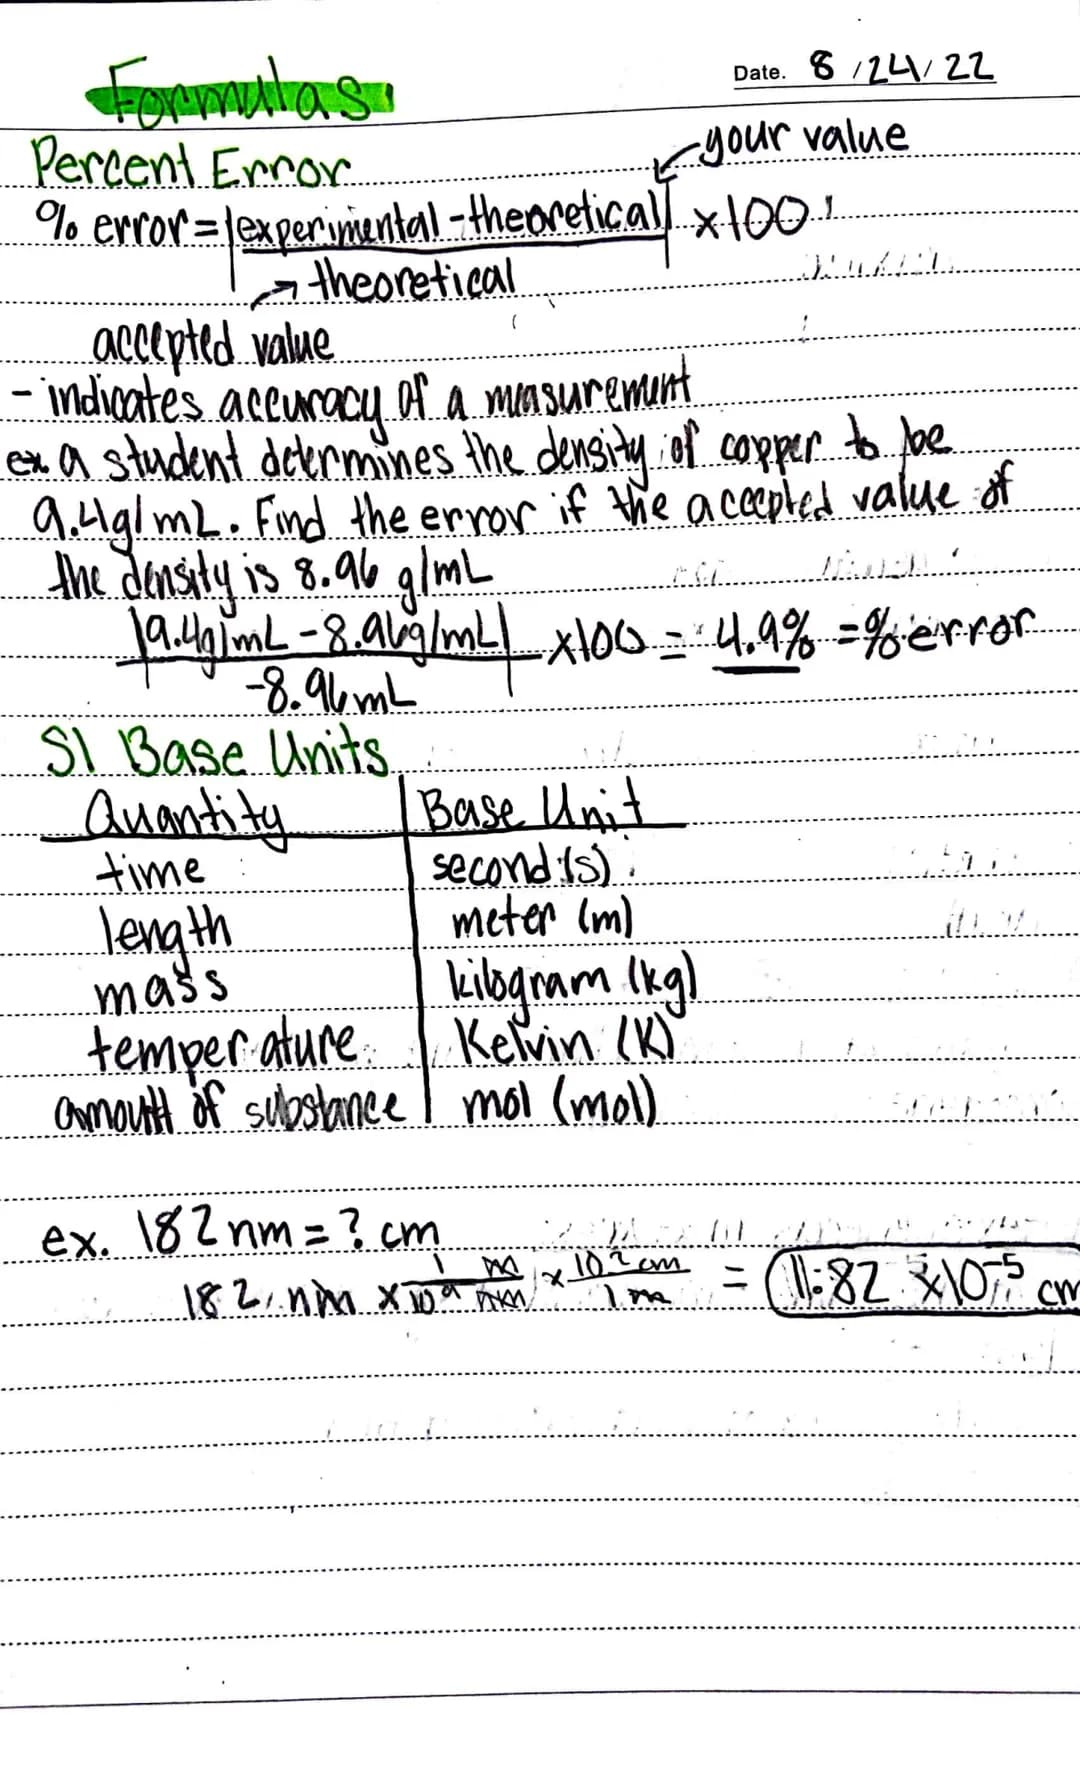 Formulas
Date. 8/24/22
Percent Error
your value
% error = |experimental - theoretical| x100
theoretical
accepted value
- indicates accuracy of a measurement
ex. a student determines the density of copper to be
9.4g/mL. Find the error if the accepted value of
the density is 8.96 g/mL
|9.4g/mL - 8.96g/mL| x100 = 4.9% = % error
-8.96mL
SI Base Units
Quantity Base Unit
time second (s)
length meter (m)
mass kilogram (kg)
temperature Kelvin (K)
amount of substance mol (mol)
ex. 182 nm = ? cm
182 nm x 1 m / 10⁹ nm x 10² cm / 1 m = 1.82 x10⁻⁵ cm